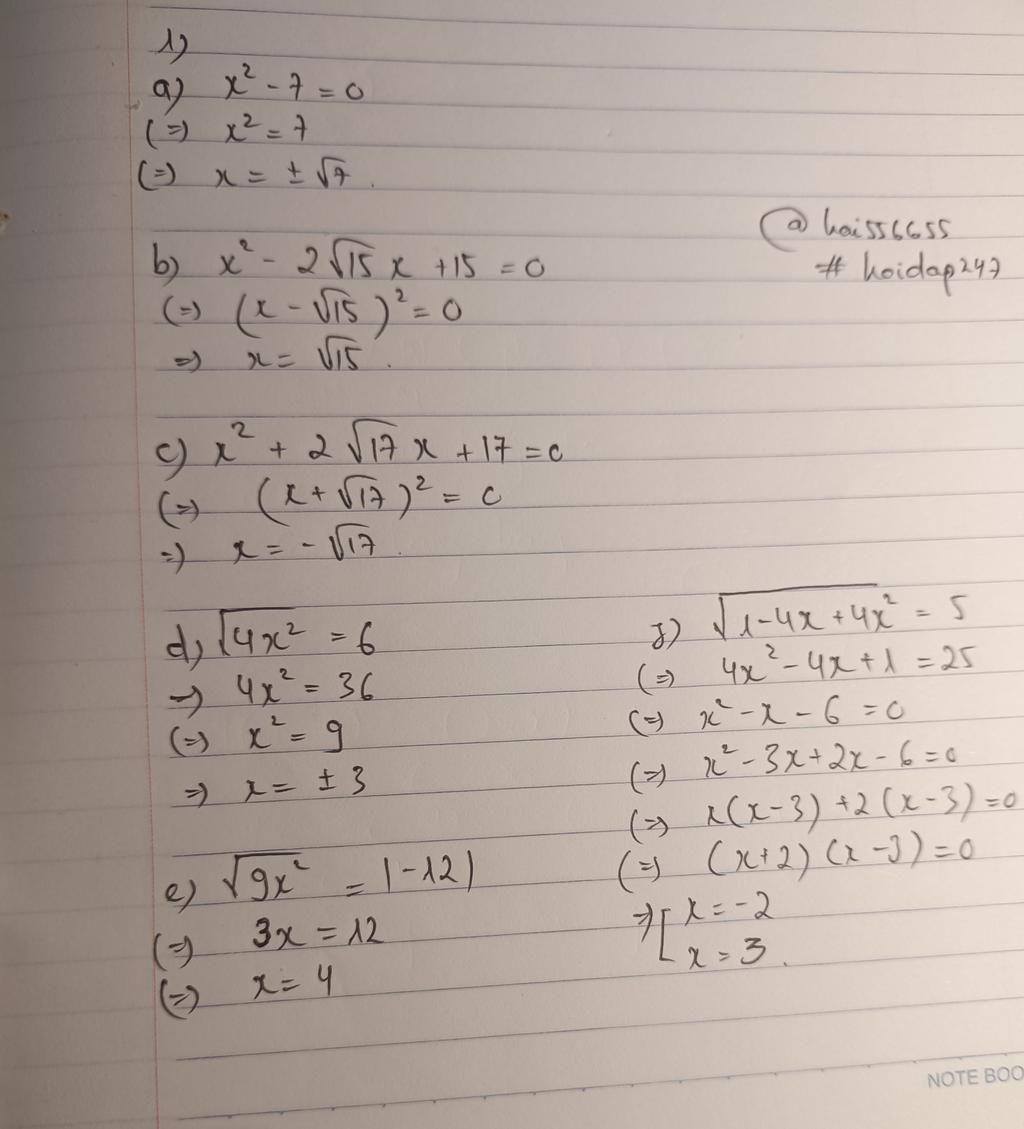 1)
a) x² - 7 = 0
(=) x² = 7
(=) x = ± √7.
@hai556655
# hoidap247
b) x² - 2√15 x + 15 = 0
(=) (x - √15)² = 0
=) x = √15.
c) x² + 2√17 x + 17 = 0
(=) (x + √17)² = 0
=) x = - √17.
d) √4x² = 6
=) 4x² = 36
(=) x² = 9
=) x = ± 3
e) √9x² = |-12|
(=) 3x = 12
(=) x = 4
g) √1-4x+4x² = 5
(=) 4x² - 4x + 1 = 25
(=) x² - x - 6 = 0
(=) x² - 3x + 2x - 6 = 0
(=) x(x-3) + 2(x-3) = 0
(=) (x+2)(x-3) = 0
=) [ x = -2
x = 3.
NOTE BOO